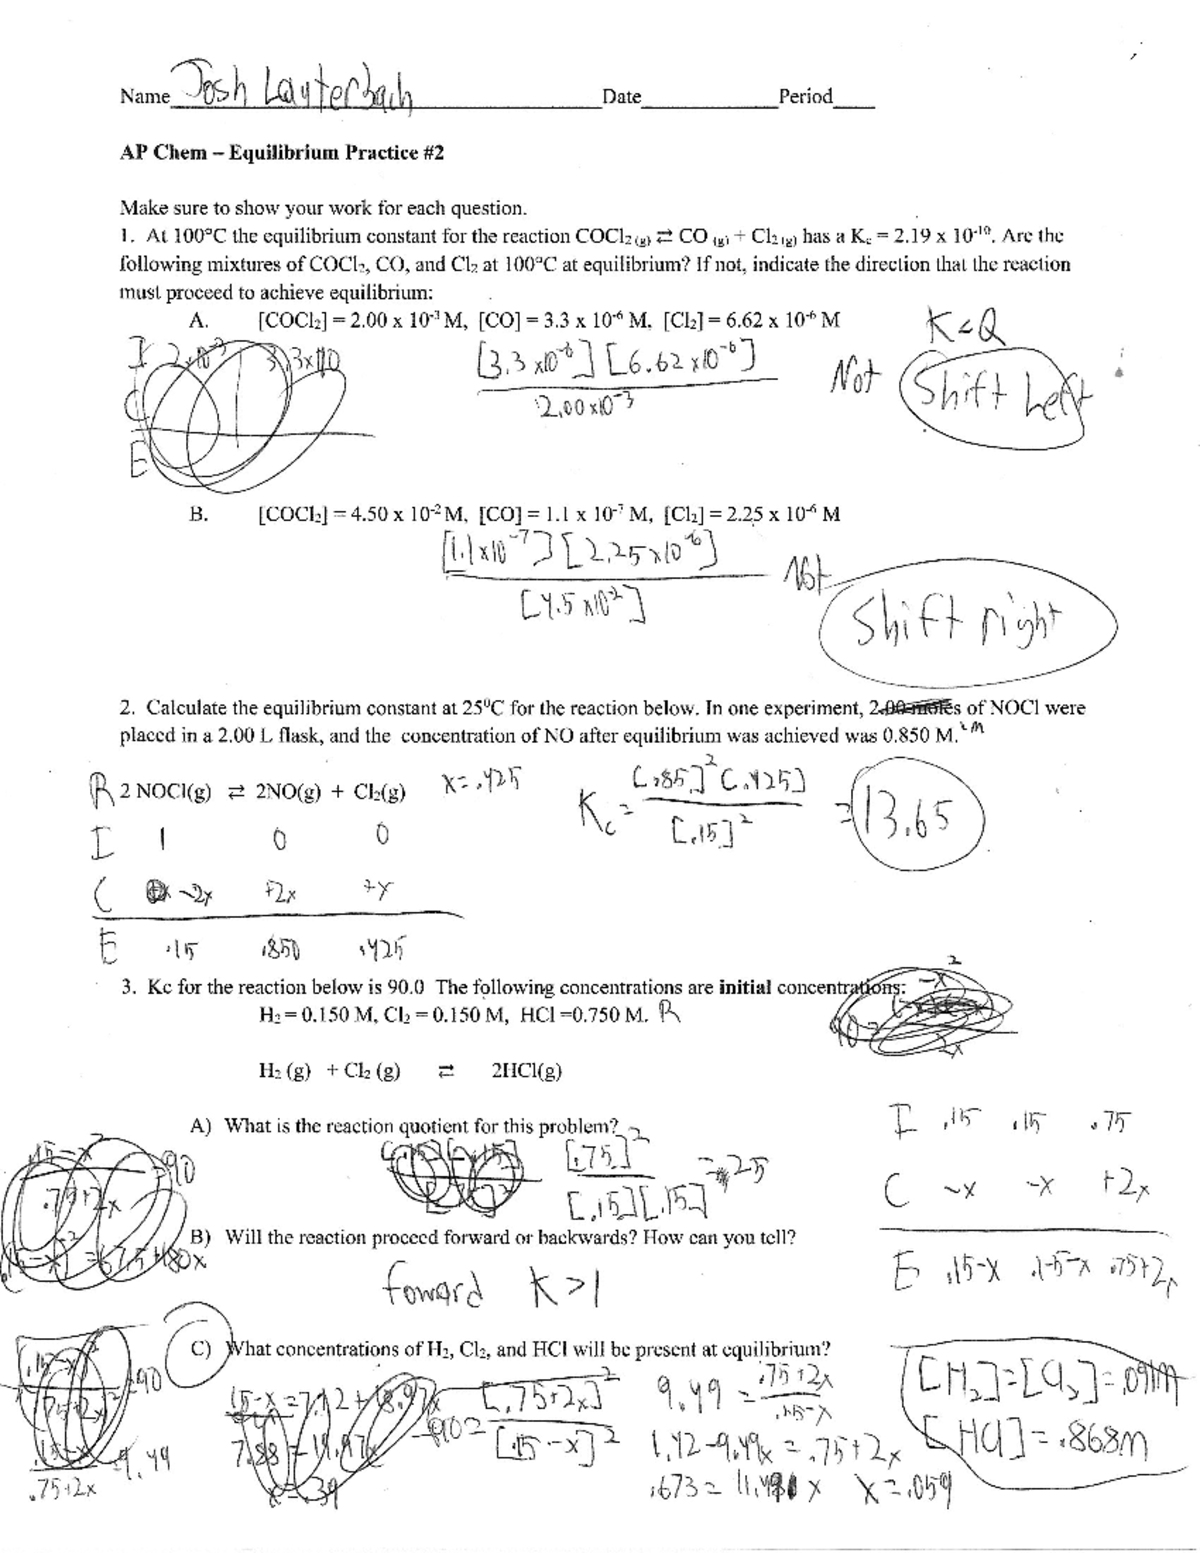 Name Josh Lauterbach Date Period
AP Chem – Equilibrium Practice #2
Make sure to show your work for each question.
1. At 100°C the equilibrium constant for the reaction COCl₂ (g) ⇄ CO (g) + Cl₂ (g) has a Kc = 2.19 x 10⁻¹⁰. Are the
following mixtures of COCl₂, CO, and Cl₂ at 100°C at equilibrium? If not, indicate the direction that the reaction
must proceed to achieve equilibrium:
A. [COCl₂] = 2.00 x 10⁻³ M, [CO] = 3.3 x 10⁻⁶ M, [Cl₂] = 6.62 x 10⁻⁶ M
K<Q
I 2x10⁻³ 3.3x10
[3.3 x10⁻⁶] [6.62 x10⁻⁶]
2.00 x10⁻³
Not Shift Left
C
E
B. [COCl₂] = 4.50 x 10⁻² M, [CO] = 1.1 x 10⁻⁷ M, [Cl₂] = 2.25 x 10⁻⁶ M
[1.1x10⁻⁷] [2.25x10⁻⁶]
[4.5 x10⁻²]
Not
Shift right
2. Calculate the equilibrium constant at 25⁰C for the reaction below. In one experiment, 2.00 moles of NOCl were
placed in a 2.00 L flask, and the concentration of NO after equilibrium was achieved was 0.850 M.
R 2 NOCl(g) ⇄ 2NO(g) + Cl₂(g) x=.425
Kc = [.85]² [.425] = 13.65
[.15]²
I 1 0 0
C -2x +2x +x
E .15 .850 .425
3. Kc for the reaction below is 90.0 The following concentrations are initial concentrations:
H₂ = 0.150 M, Cl₂ = 0.150 M, HCl =0.750 M. R
H₂ (g) + Cl₂ (g) ⇄ 2HCl(g)
A) What is the reaction quotient for this problem?
[.75]²
[.15][.15]
= 25
I .15 .15 .75
C -x -x +2x
E .15-x .15-x .75+2x
B) Will the reaction proceed forward or backwards? How can you tell?
foward K>1
C) What concentrations of H₂, Cl₂, and HCl will be present at equilibrium?
[.75+2x]²
[.15-x]²
9.49 = .75+2x
.15-x
1.42-9.49x = .75+2x
.673 = 11.49x x=.059
[H₂]=[Cl₂]=.091M
[HCl]=.868M
.15-x
.75+2x
9.49